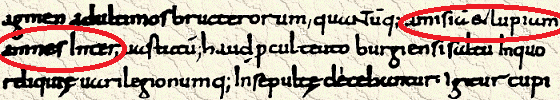 agmen adultimosbructerorum, quantūq; amisiā & lupiam
amnes Inter, uastatū; haud pcul teuto burgiensi saltu Inquo
reliquię uari legionumq; Insepultę dicebantur. Igitur cupi